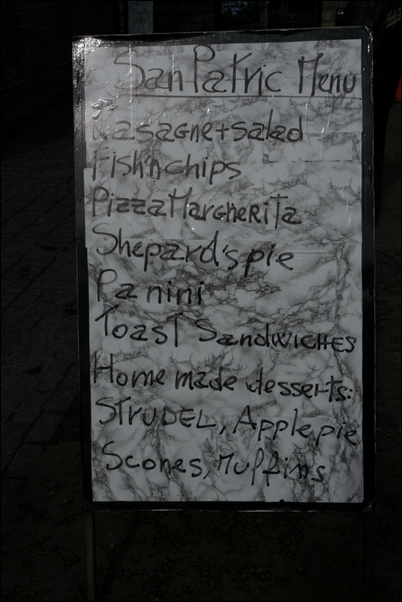 San Patric Menu
Lasagne + salad
Fish'n chips
Pizza Margherita
Shepard's pie
Panini
Toast Sandwiches
Home made desserts:
STRUDEL, Apple pie
Scones, Muffins